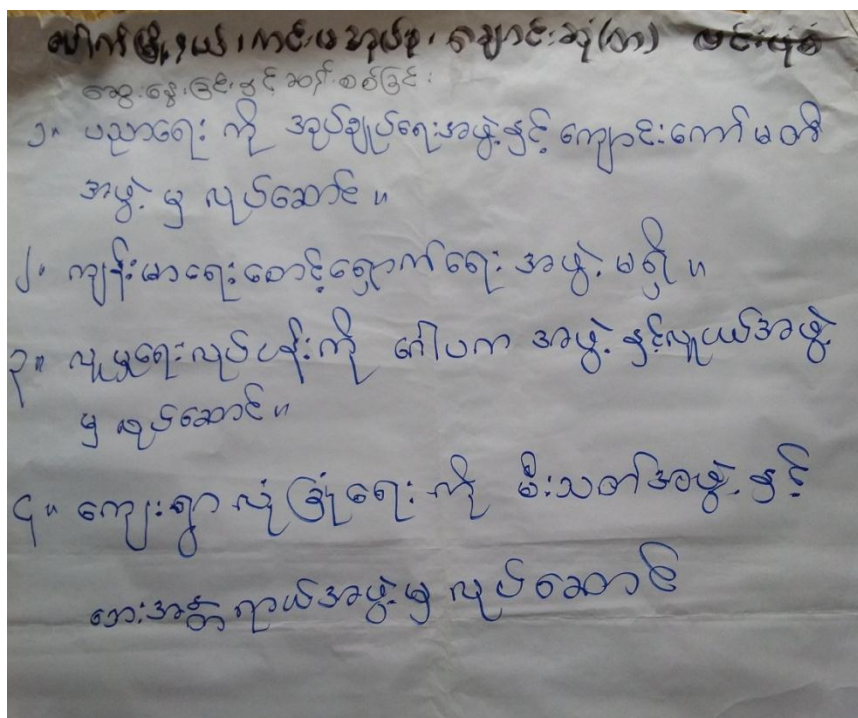 ပေါက်မြို့နယ်၊ ကင်းမအုပ်စု၊ ချောင်းဆုံ(တာ)
ဆွေးနွေးခြင်းနှင့် ဆန်းစစ်ခြင်း
၁။ ပညာရေး ကို အုပ်ချုပ်ရေးအဖွဲ့နှင့် ကျောင်းကော်မတီ
အဖွဲ့ မှ လုပ်ဆောင်။
၂။ ကျန်းမာရေးစောင့်ရှောက်ရေး အဖွဲ့ မရှိ။
၃။ လူမှုရေးလုပ်ငန်းကို ဂေါပက အဖွဲ့ နှင့်လူငယ်အဖွဲ့
မှ လုပ်ဆောင်။
၄။ ကျေးရွာ လုံခြုံရေး ကို မီးသတ်အဖွဲ့ နှင့်
ဘေးအန္တရာယ်အဖွဲ့မှ လုပ်ဆောင်